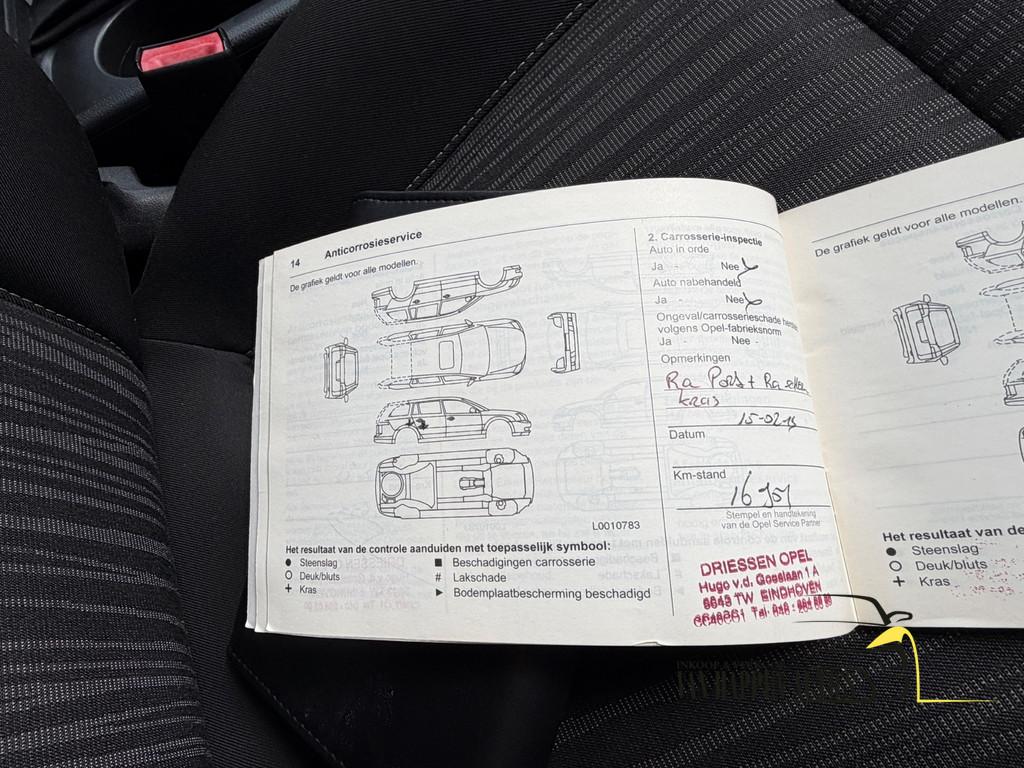 14 Anticorrosieservice
De grafiek geldt voor alle modellen.
L0010783
Het resultaat van de controle aanduiden met toepasselijk symbool:
● Steenslag
○ Deuk/bluts
+ Kras
■ Beschadigingen carrosserie
# Lakschade
► Bodemplaatbescherming beschadigd
2. Carrosserie-inspectie
Auto in orde
Ja - Nee
Auto nabehandeld
Ja - Nee
Ongeval/carrosserieschade
volgens Opel-fabrieksnorm
Ja - Nee -
Opmerkingen
Ra Port + Ra
kras
Datum
Km-stand
Stempel en handtekening
van de Opel Service Partner
DRIESSEN OPEL
Hugo v.d. Goeslaan 1 A
5643 TW EINDHOVEN
De grafiek geldt voor alle modellen.
Het resultaat van de
● Steenslag
○ Deuk/bluts
+ Kras